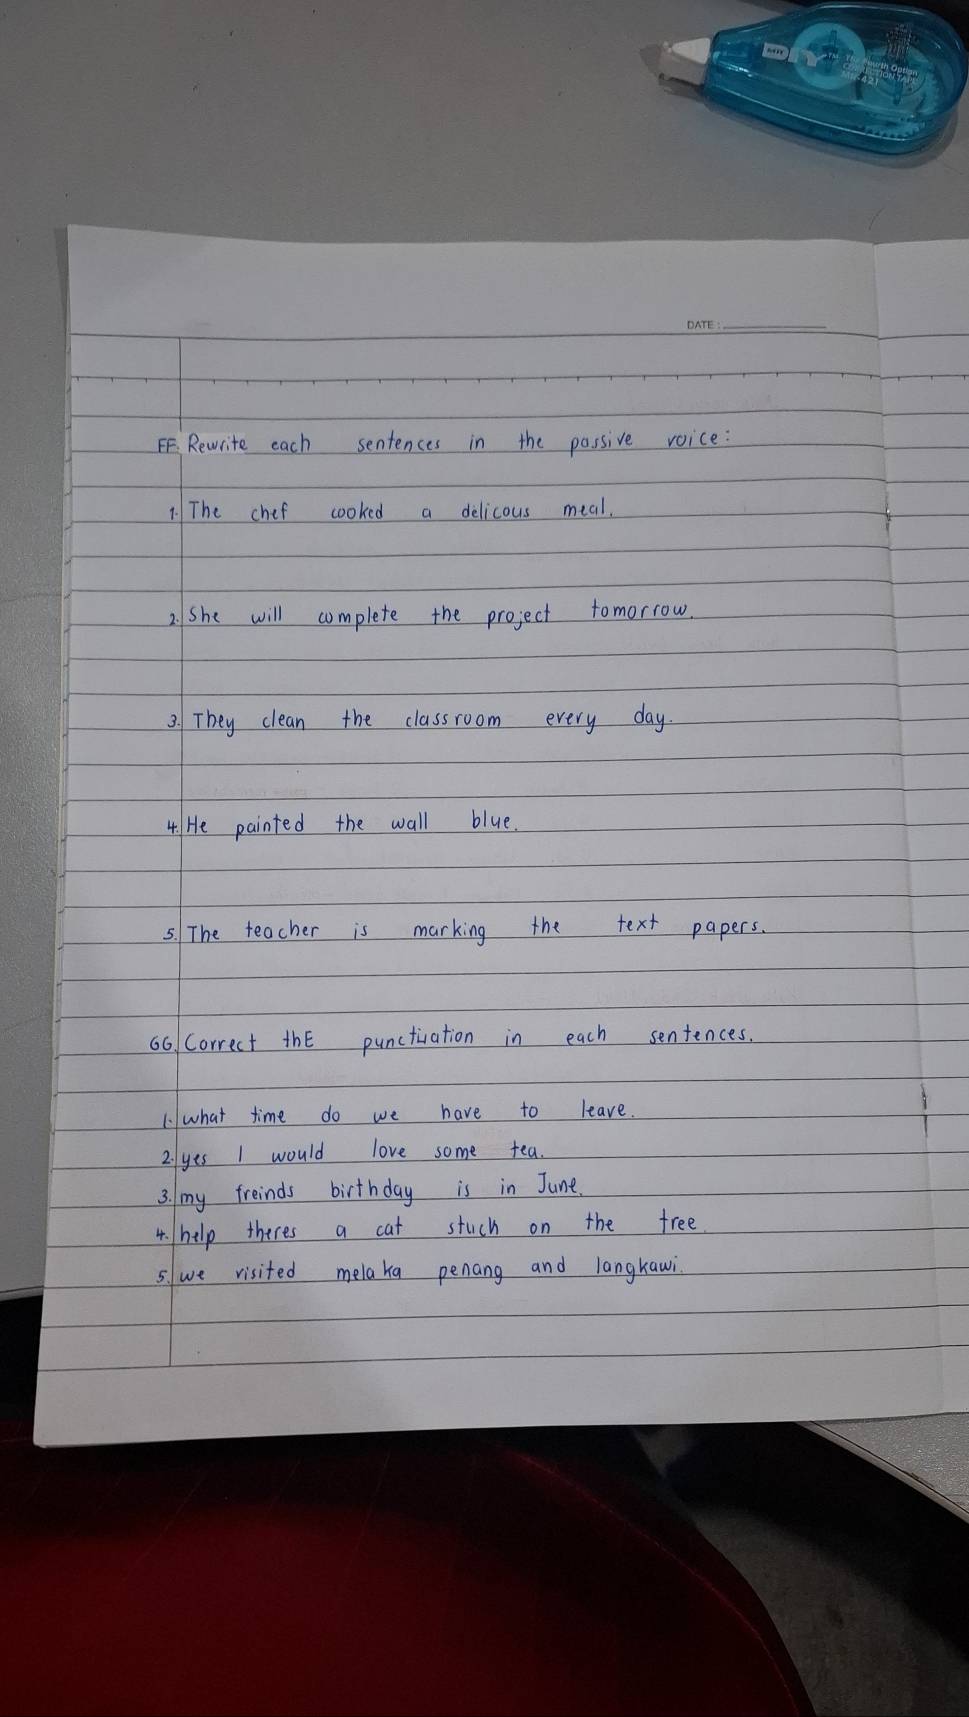 MR DIY™ The Fourth Option
CORRECTION TAPE
MR-421
DATE :
FF. Rewrite each sentences in the passive voice:
1. The chef cooked a delicous meal.
2. She will complete the project tomorrow.
3. They clean the classroom every day.
4. He painted the wall blue.
5. The teacher is marking the text papers.
GG. Correct thE punctuation in each sentences.
1. what time do we have to leave.
2. yes I would love some tea.
3. my freinds birthday is in June.
4. help theres a cat stuch on the tree.
5. we visited melaka penang and langkawi.